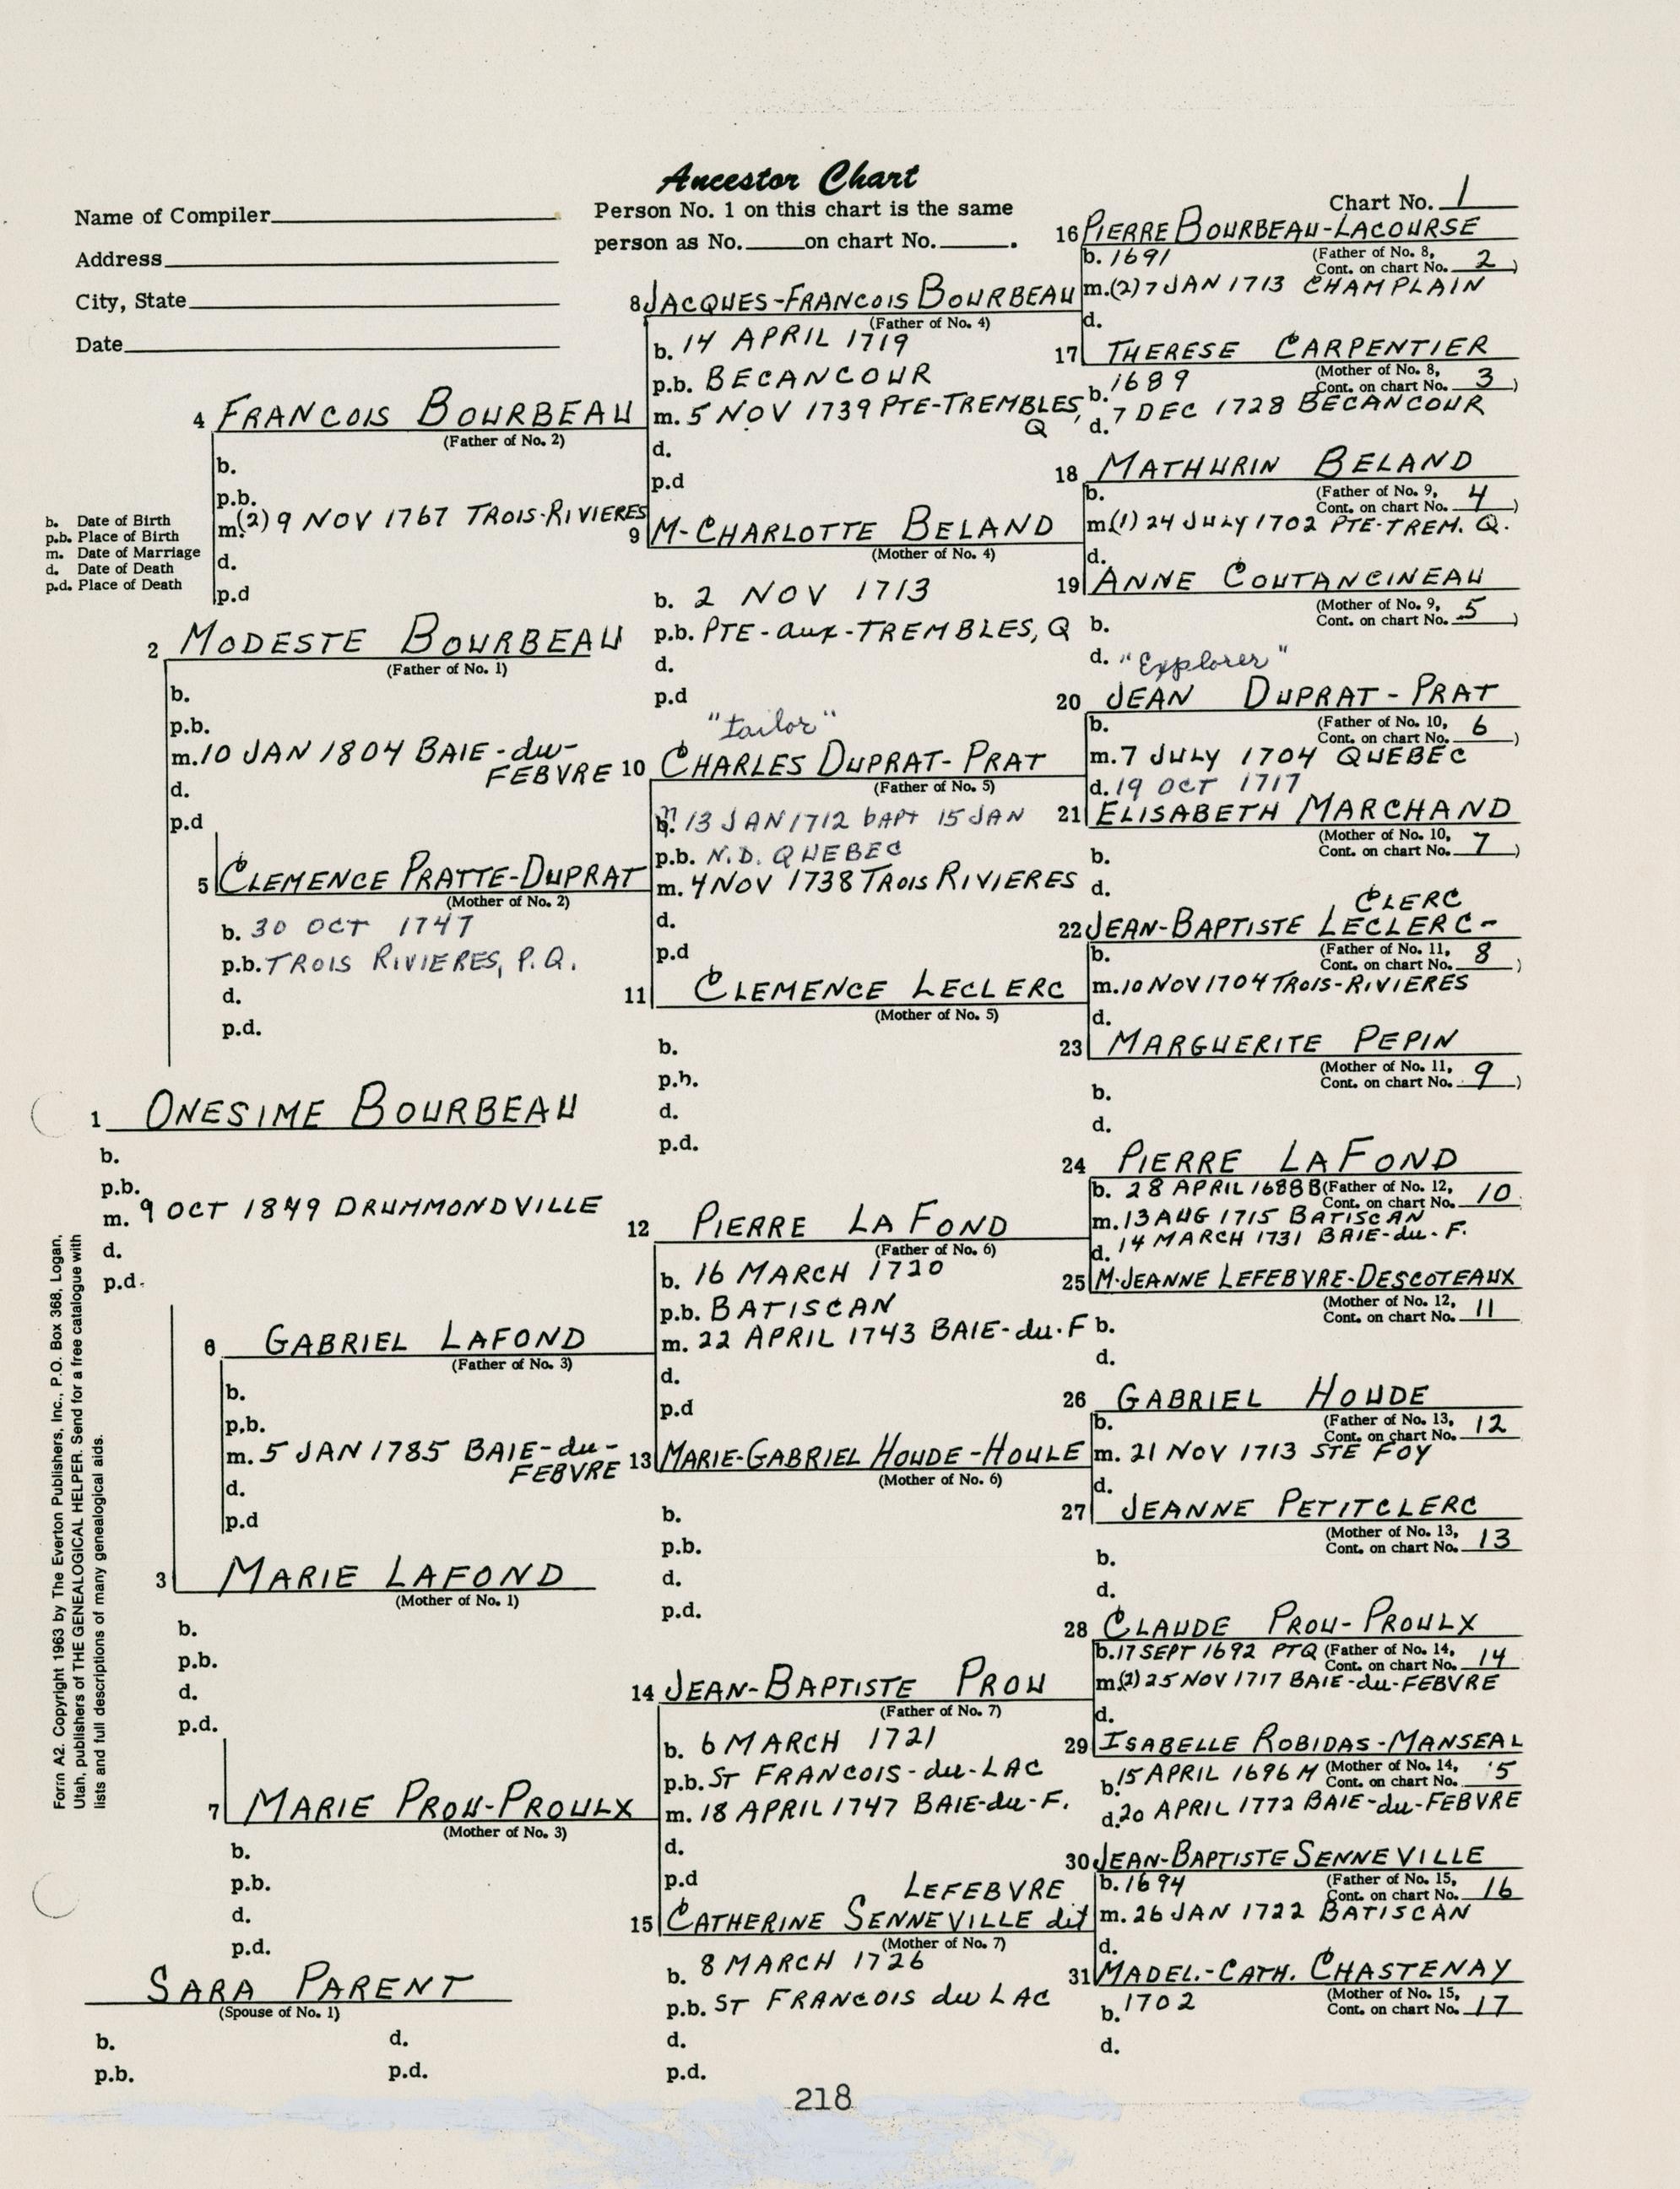 Ancestor Chart
Name of Compiler
Address
City, State
Date
Person No. 1 on this chart is the same
person as No. on chart No. .
Chart No. 1
b. Date of Birth
p.b. Place of Birth
m. Date of Marriage
d. Date of Death
p.d. Place of Death
1 ONESIME BOURBEAU
b.
p.b.
m. 9 OCT 1849 DRUMMONDVILLE
d.
p.d.
2 MODESTE BOURBEAU
(Father of No. 1)
b.
p.b.
m. 10 JAN 1804 BAIE-du-
FEBVRE
d.
p.d
3 MARIE LAFOND
(Mother of No. 1)
b.
p.b.
d.
p.d.
SARA PARENT
(Spouse of No. 1)
b. d.
p.b. p.d.
4 FRANCOIS BOURBEAU
(Father of No. 2)
b.
p.b.
m.(2) 9 NOV 1767 TROIS-RIVIERES
d.
p.d
5 CLEMENCE PRATTE-DUPRAT
(Mother of No. 2)
b. 30 OCT 1747
p.b. TROIS RIVIERES, P.Q.
d.
p.d.
6 GABRIEL LAFOND
(Father of No. 3)
b.
p.b.
m. 5 JAN 1785 BAIE-du-
FEBVRE
d.
p.d
7 MARIE PROU-PROULX
(Mother of No. 3)
b.
p.b.
d.
p.d.
8 JACQUES-FRANCOIS BOURBEAU
(Father of No. 4)
b. 14 APRIL 1719
p.b. BECANCOUR
m. 5 NOV 1739 PTE-TREMBLES,
Q
d.
p.d
9 M-CHARLOTTE BELAND
(Mother of No. 4)
b. 2 NOV 1713
p.b. PTE-aux-TREMBLES, Q
d.
p.d
"tailor"
10 CHARLES DUPRAT-PRAT
(Father of No. 5)
b. 13 JAN 1712 bAPt 15 JAN
p.b. N.D. QUEBEC
m. 4 NOV 1738 TROIS RIVIERES
d.
p.d
11 CLEMENCE LECLERC
(Mother of No. 5)
b.
p.b.
d.
p.d.
12 PIERRE LA FOND
(Father of No. 6)
b. 16 MARCH 1720
p.b. BATISCAN
m. 22 APRIL 1743 BAIE-du-F
d.
p.d
13 MARIE-GABRIEL HOUDE-HOULE
(Mother of No. 6)
b.
p.b.
d.
p.d.
14 JEAN-BAPTISTE PROU
(Father of No. 7)
b. 6 MARCH 1721
p.b. ST FRANCOIS-du-LAC
m. 18 APRIL 1747 BAIE-du-F.
d.
p.d
LEFEBVRE
15 CATHERINE SENNEVILLE dit
(Mother of No. 7)
b. 8 MARCH 1726
p.b. ST FRANCOIS du LAC
d.
p.d.
16 PIERRE BOURBEAU-LACOURSE
b. 1691 (Father of No. 8,
Cont. on chart No. 2)
m.(2) 7 JAN 1713 CHAMPLAIN
d.
17 THERESE CARPENTIER
(Mother of No. 8,
b. 1689 Cont. on chart No. 3)
d. 7 DEC 1728 BECANCOUR
18 MATHURIN BELAND
b. (Father of No. 9,
Cont. on chart No. 4)
m(1) 24 JULY 1702 PTE-TREM. Q.
d.
19 ANNE COUTANCINEAU
(Mother of No. 9,
Cont. on chart No. 5)
b.
d.
"Explorer"
20 JEAN DUPRAT-PRAT
b. (Father of No. 10,
Cont. on chart No. 6)
m. 7 JULY 1704 QUEBEC
d. 19 OCT 1717
21 ELISABETH MARCHAND
(Mother of No. 10,
Cont. on chart No. 7)
b.
d.
CLERC
22 JEAN-BAPTISTE LECLERC-
b. (Father of No. 11,
Cont. on chart No. 8)
m. 10 NOV 1704 TROIS-RIVIERES
d.
23 MARGUERITE PEPIN
(Mother of No. 11,
Cont. on chart No. 9)
b.
d.
24 PIERRE LAFOND
b. 28 APRIL 1688 B (Father of No. 12,
Cont. on chart No. 10
m. 13 AUG 1715 BATISCAN
d. 14 MARCH 1731 BAIE-du-F.
25 M-JEANNE LEFEBVRE-DESCOTEAUX
(Mother of No. 12,
Cont. on chart No. 11
b.
d.
26 GABRIEL HOUDE
b. (Father of No. 13,
Cont. on chart No. 12
m. 21 NOV 1713 STE FOY
d.
27 JEANNE PETITCLERC
(Mother of No. 13,
Cont. on chart No. 13
b.
d.
28 CLAUDE PROU-PROULX
b. 17 SEPT 1692 PTQ (Father of No. 14,
Cont. on chart No. 14
m(2) 25 NOV 1717 BAIE-du-FEBVRE
d.
29 ISABELLE ROBIDAS-MANSEAU
b. 15 APRIL 1696 M (Mother of No. 14,
Cont. on chart No. 15
d. 20 APRIL 1772 BAIE-du-FEBVRE
30 JEAN-BAPTISTE SENNEVILLE
b. 1694 (Father of No. 15,
Cont. on chart No. 16
m. 26 JAN 1722 BATISCAN
d.
31 MADEL.-CATH. CHASTENAY
b. 1702 (Mother of No. 15,
Cont. on chart No. 17
d.
Form A2. Copyright 1963 by The Everton Publishers, Inc., P.O. Box 368, Logan,
Utah, publishers of THE GENEALOGICAL HELPER. Send for a free catalogue with
lists and full descriptions of many genealogical aids.
218